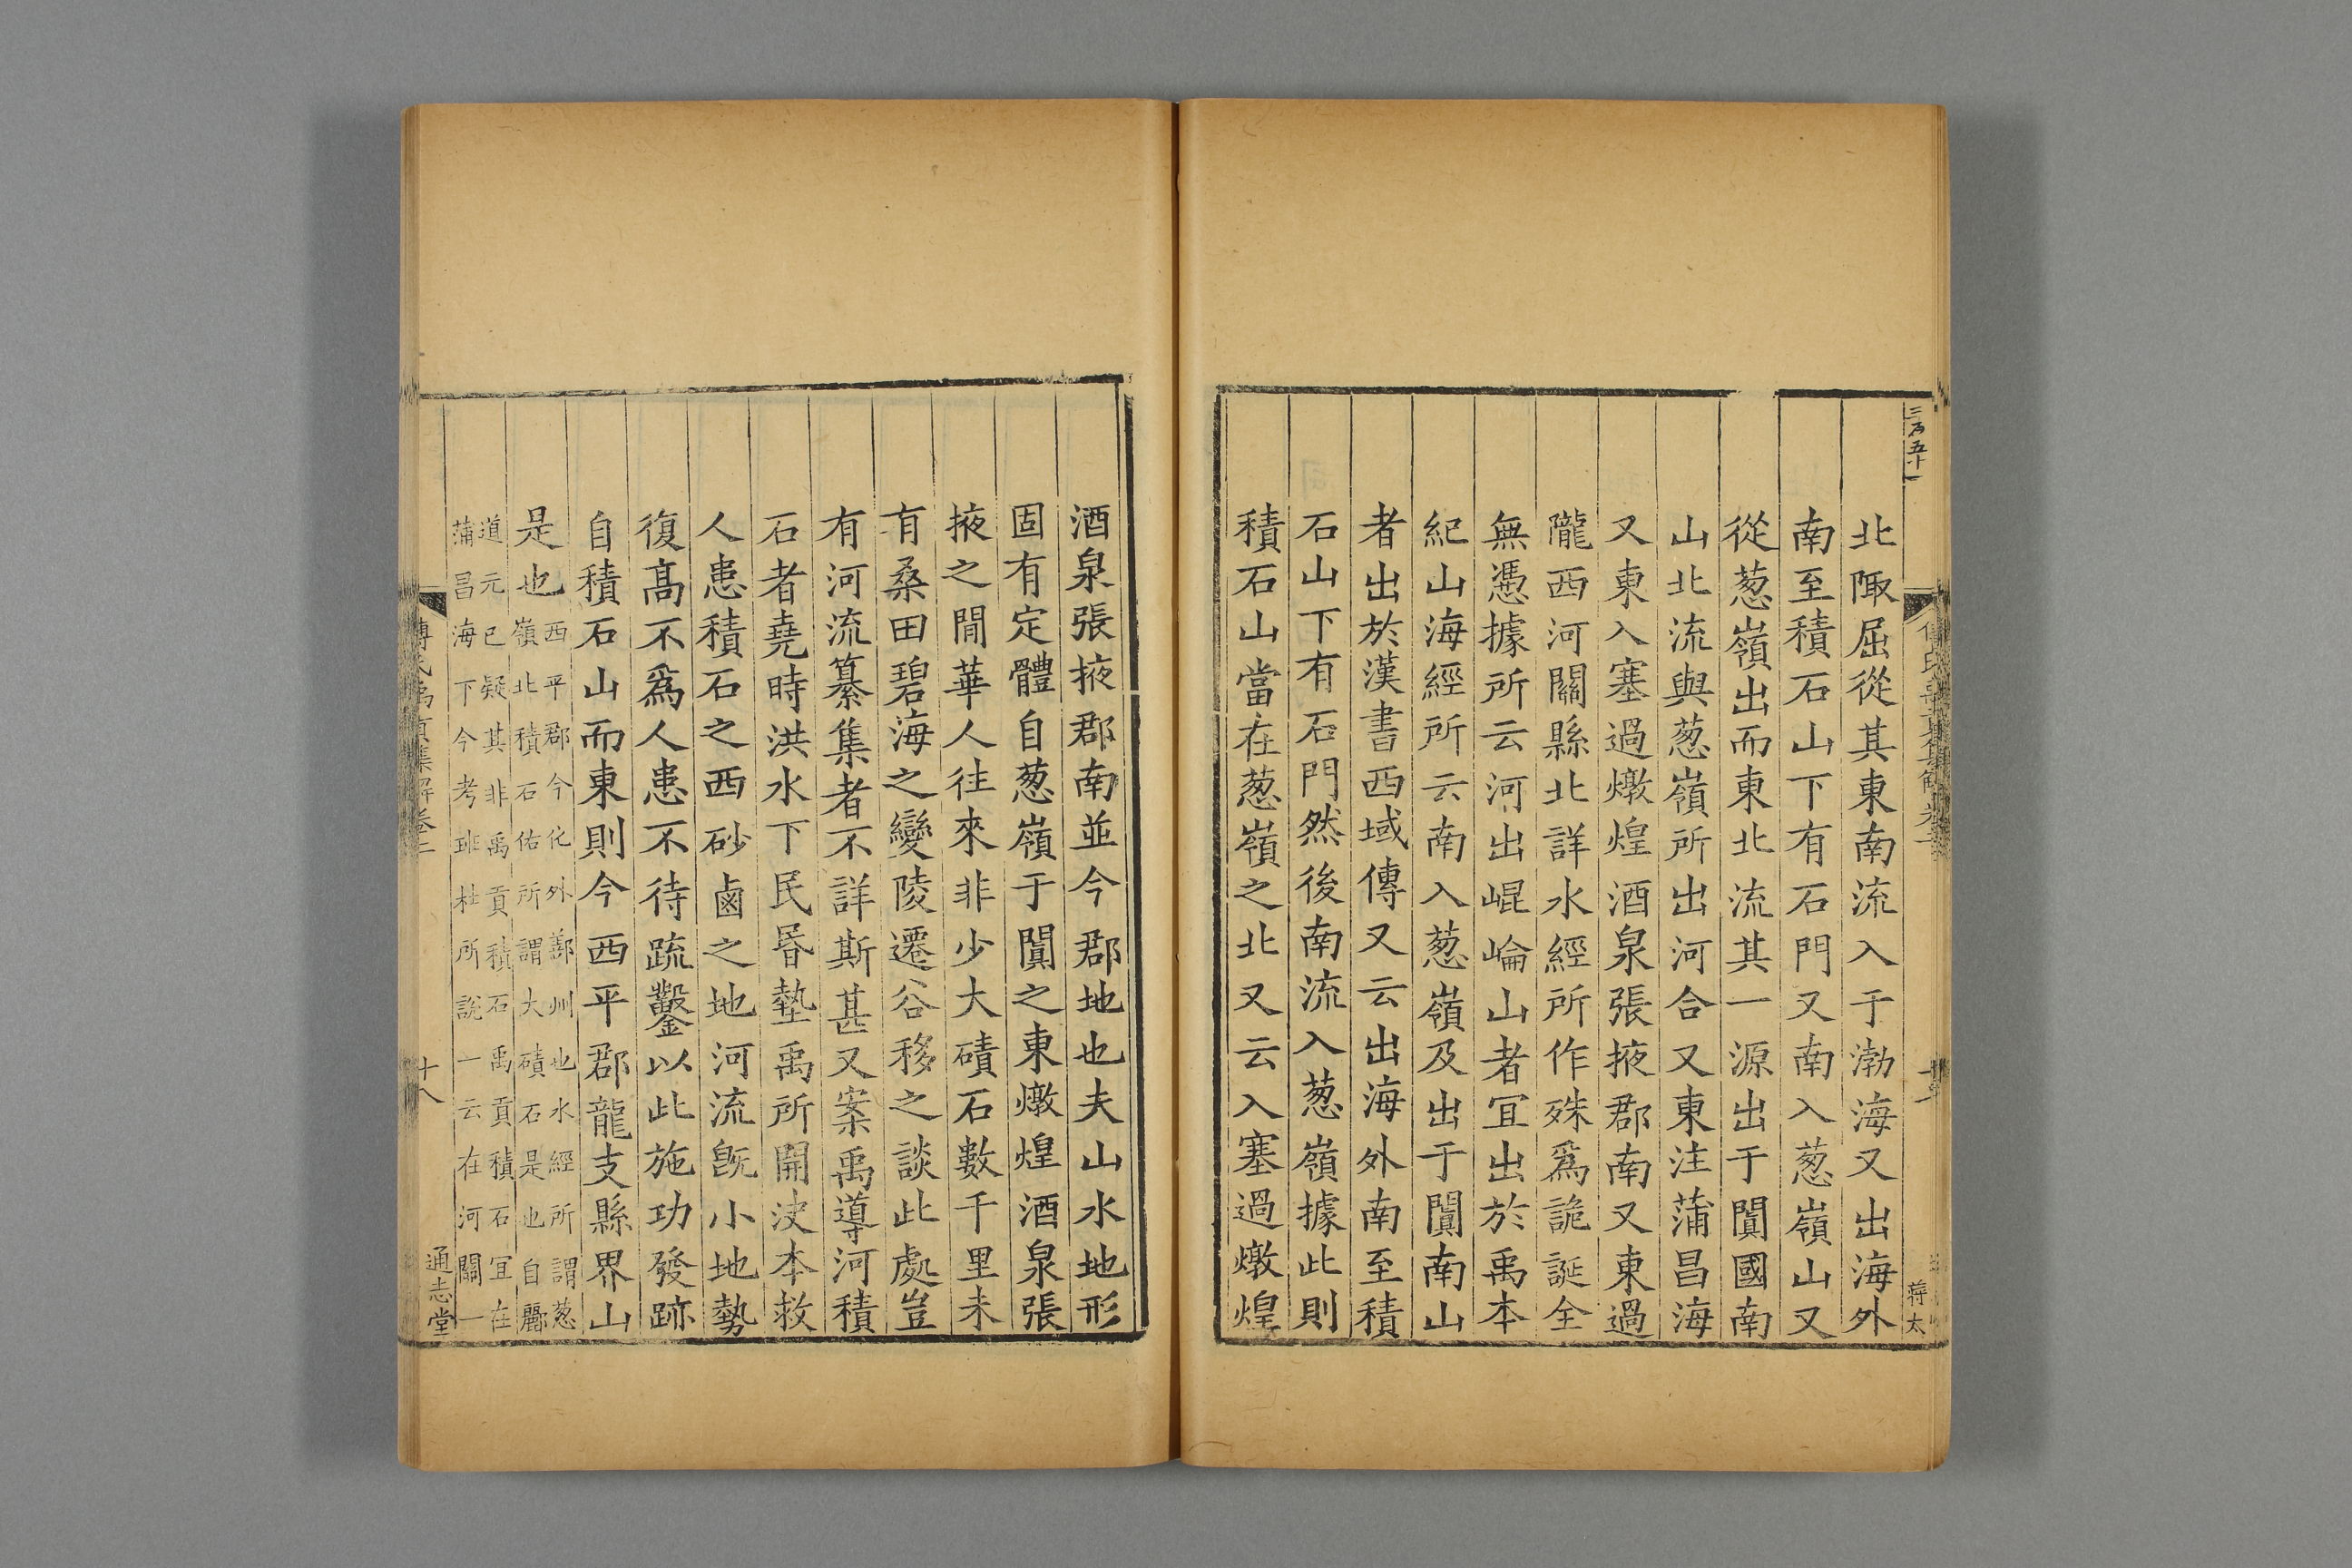 三百五十一
北陬屈從其東南流入于渤海又出海外
南至積石山下有石門又南入葱嶺山又
從葱嶺出而東北流其一源出于闐國南
山北流與葱嶺所出河合又東注蒲昌海
又東入塞過燉煌酒泉張掖郡南又東過
隴西河關縣北詳水經所作殊爲詭誕全
無憑據所云河出崐崘山者宜出於禹本
紀山海經所云南入葱嶺及出于闐南山
者出於漢書西域傳又云出海外南至積
石山下有石門然後南流入葱嶺據此則
積石山當在葱嶺之北又云入塞過燉煌
蒋太
酒泉張掖郡南並今郡地也夫山水地形
固有定體自葱嶺于闐之東燉煌酒泉張
掖之閒華人往來非少大磧石數千里未
有桑田碧海之變陵遷谷移之談此處豈
有河流纂集者不詳斯甚又案禹導河積
石者堯時洪水下民昬墊禹所開决本救
人患積石之西砂鹵之地河流旣小地勢
復高不爲人患不待疏鑿以此施功發跡
自積石山而東則今西平郡龍支縣界山
是也
西平郡今化外鄯州也水經所謂葱
嶺北積石佑所謂大磧石是也自酈
道元已疑其非禹貢積石禹貢積石宜在
蒲昌海下今考班杜所說一云在河關一
傅氏禹貢集解卷二
十八
通志堂